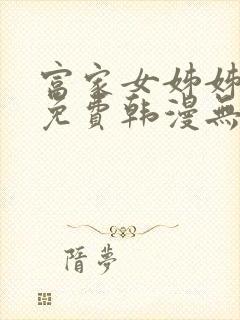 富家女姊姊
免費韩漫無
隋夢